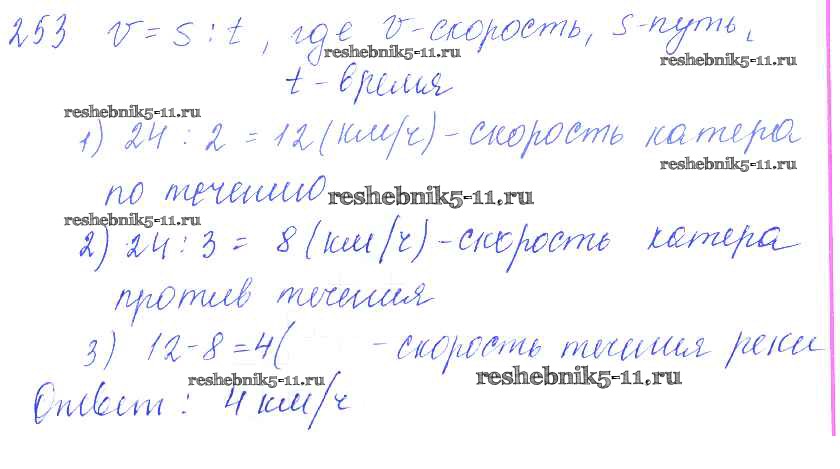 253 v = s : t, где v - скорость, s - путь,
reshebnik5-11.ru
reshebnik5-11.ru
t - время
reshebnik5-11.ru
1) 24 : 2 = 12 (км/ч) - скорость катера
reshebnik5-11.ru
по течению
reshebnik5-11.ru
reshebnik5-11.ru
2) 24 : 3 = 8 (км/ч) - скорость катера
против течения
3) 12 - 8 = 4 ( - скорость течения реки
reshebnik5-11.ru
reshebnik5-11.ru
Ответ: 4 км/ч